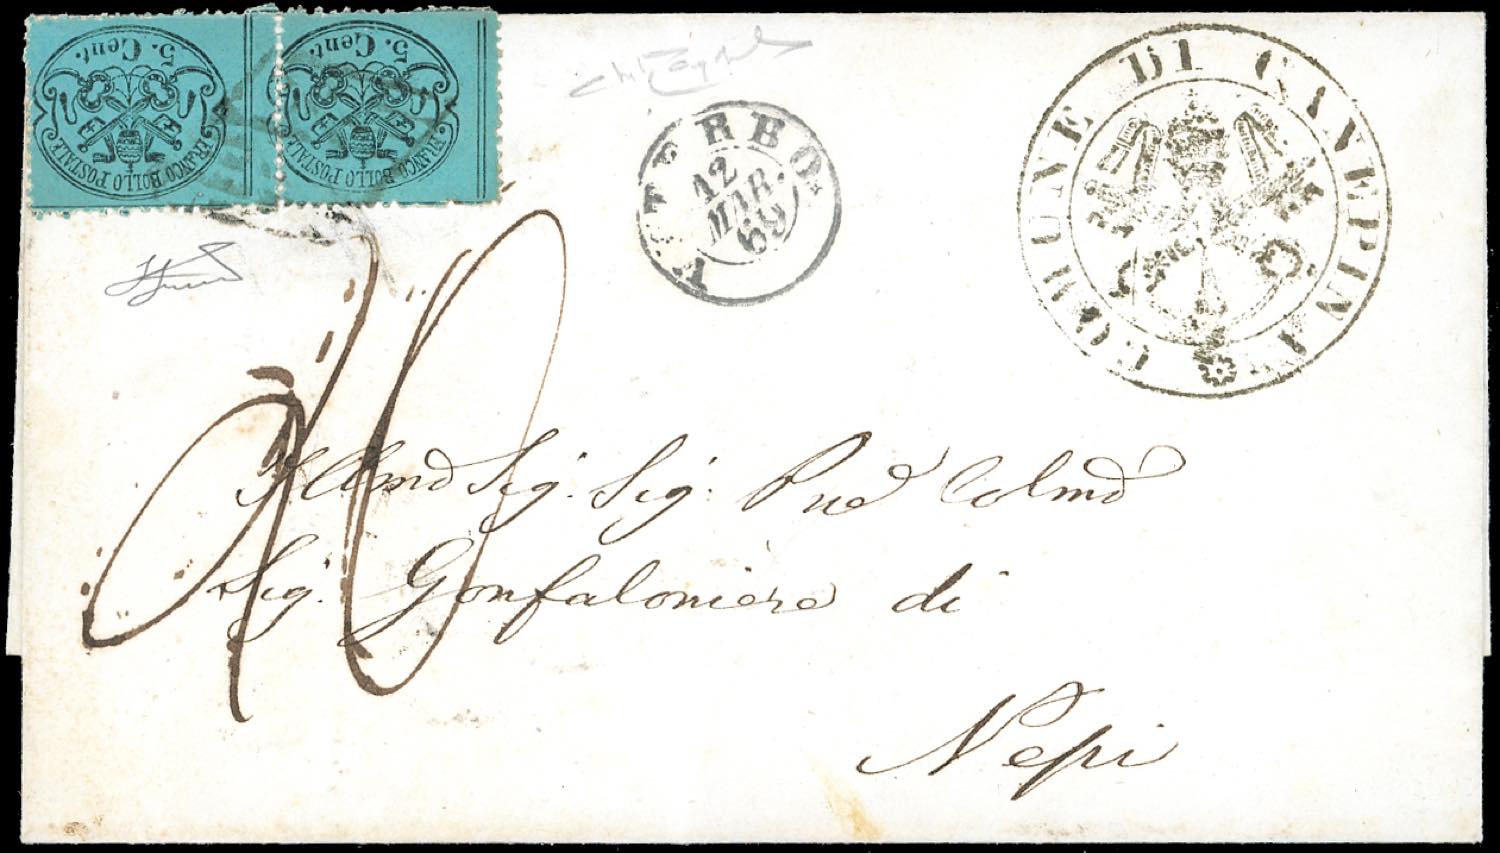 5. Cent.
FRANCO BOLLO POSTALE
5. Cent.
FRANCO BOLLO POSTALE
VITERBO
12
MAR.
69
COMUNE DI CANEPINA
10
Illmo Sig. Sig. Pne Colmo
Sig. Gonfaloniere di
Nepi